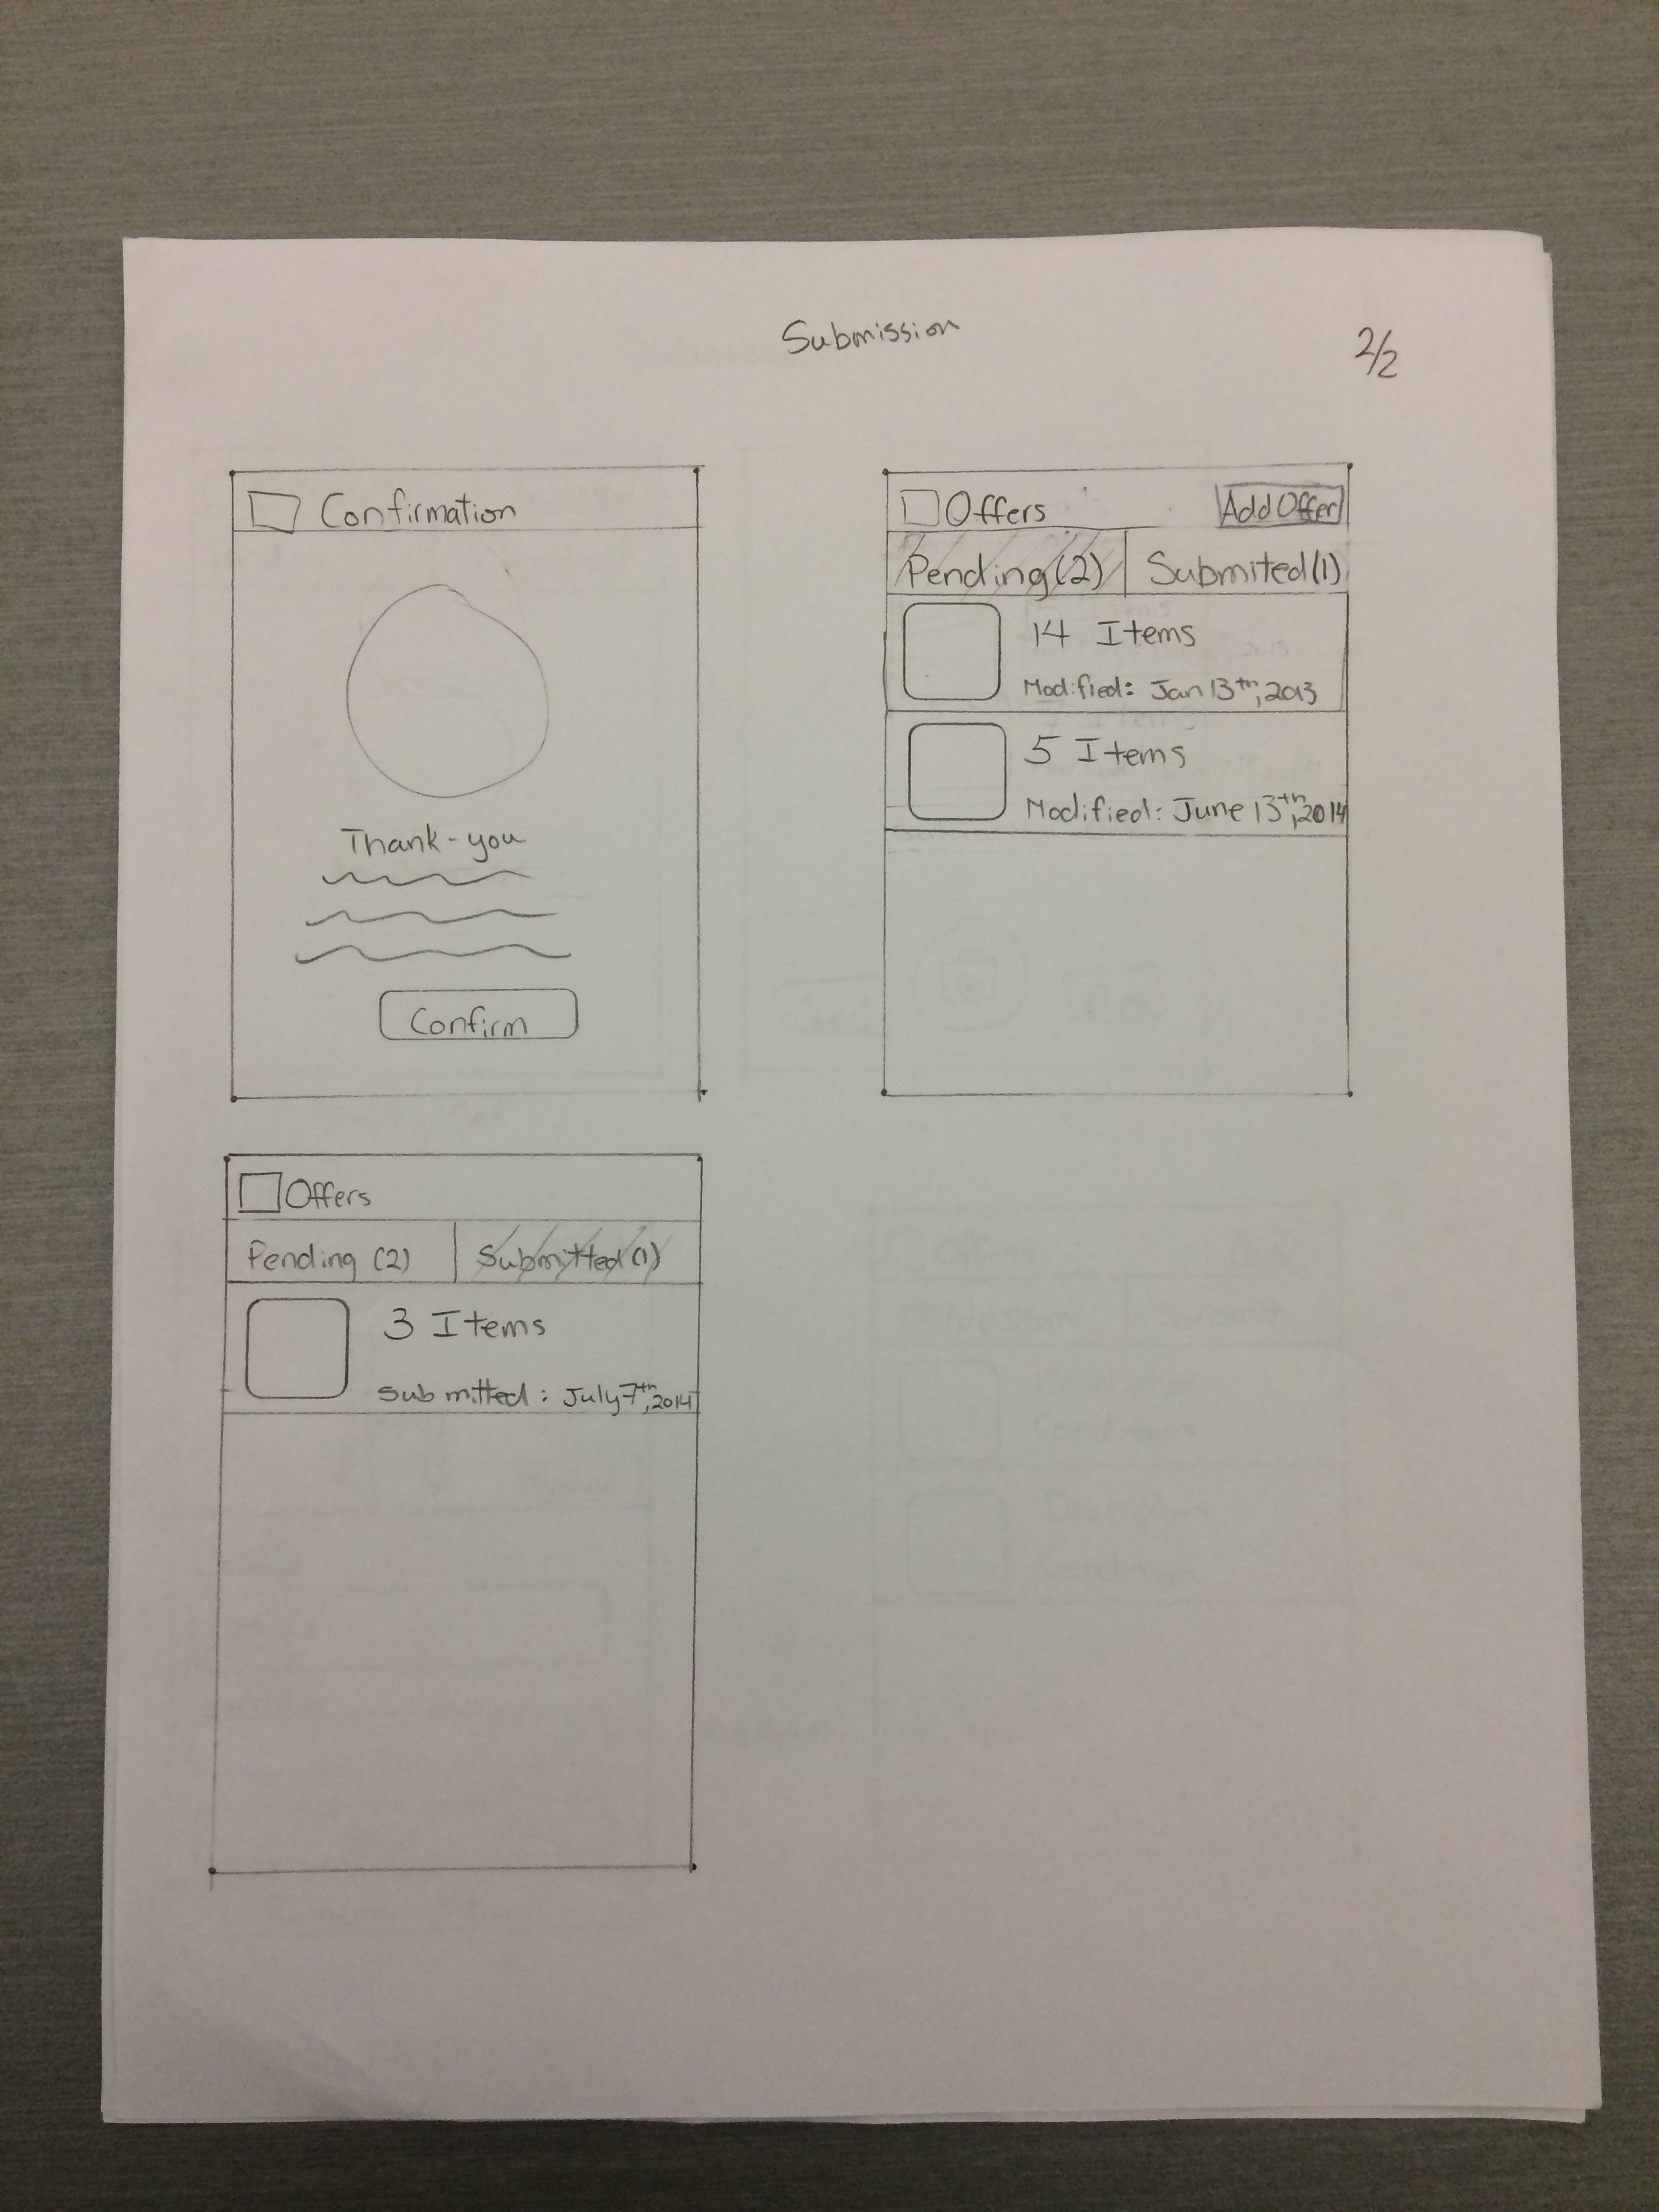 Submission
2/2
Confirmation
Thank-you
Confirm
Offers
Add Offer
Pending (2)
Submited (1)
14 Items
Modified: Jan 13th, 2013
5 Items
Modified: June 13th, 2014
Offers
Pending (2)
Submitted (1)
3 Items
Submitted: July 7th, 2014